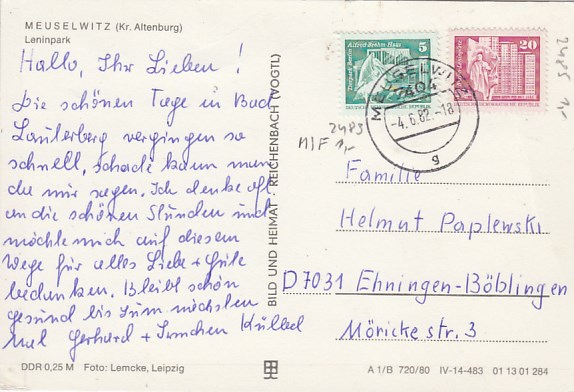 MEUSELWITZ (Kr. Altenburg)
Leninpark
Hallo, Ihr Lieben!
Die schönen Tage in Bad
Lauterberg vergingen so
schnell, schade kann man
da nur sagen. Ich denke oft
an die schönen Stunden und
möchte mich auf diesem
Wege für alles Liebe + Gute
bedanken. Bleibt schön
gesund bis zum nächsten
Mal Gerhard +
DDR 0,25 M Foto: Lemcke, Leipzig
BILD UND HEIMAT REICHENBACH (VOGTL)
Alfred-Brehm-Haus
Tierpark Berlin
5
20
MEUSELWITZ
7404
-4.6.82-18
g
2483
MIF 1,-
2485
1,-
Familie
Helmut Paplewski
D7031 Ehningen-Böblingen
Möricke str. 3
A 1/B 720/80 IV-14-483 01 13 01 284